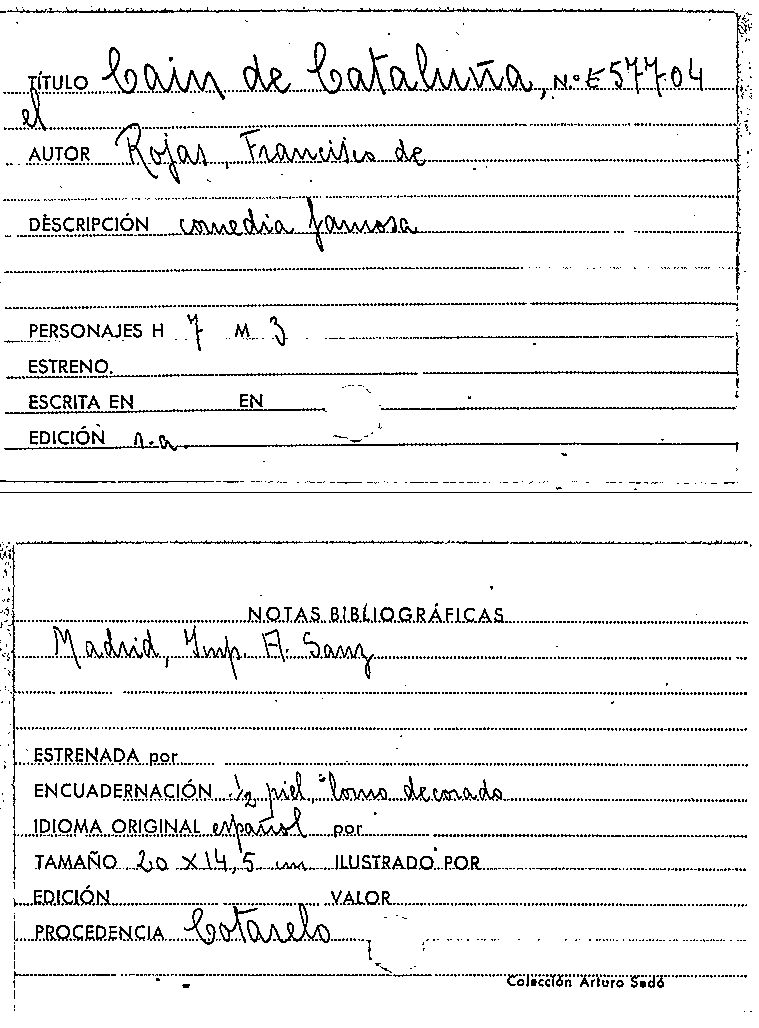 TÍTULO Cain de Cataluña, N.º E 57704
el
AUTOR Rojas, Francisco de
DESCRIPCIÓN comedia famosa
PERSONAJES H 7 M 3
ESTRENO.
ESCRITA EN EN
EDICIÓN s.a.
NOTAS BIBLIOGRÁFICAS
Madrid, Imp. A. Sanz
ESTRENADA por
ENCUADERNACIÓN ½ piel, lomo decorado
IDIOMA ORIGINAL español por
TAMAÑO 20 x 14,5 cm ILUSTRADO POR
EDICIÓN VALOR
PROCEDENCIA Cotarelo
Colección Arturo Sedó